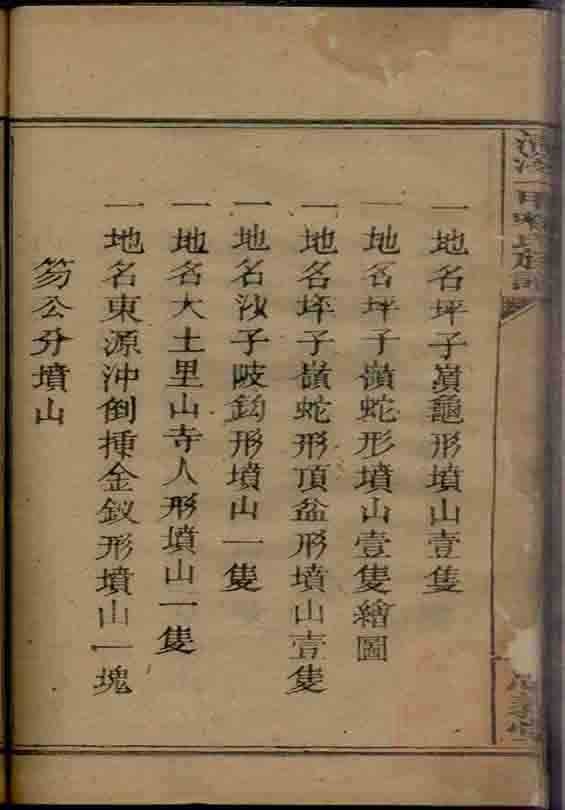 一地名坪子嶺龜形墳山壹隻
一地名坪子嶺蛇形墳山壹隻繪圖
一地名坪子嶺蛇形頂盆形墳山壹隻
一地名沙子岐鈎形墳山一隻
一地名大土里山寺人形墳山一隻
一地名東源沖倒揷金釵形墳山一塊
笏公分墳山